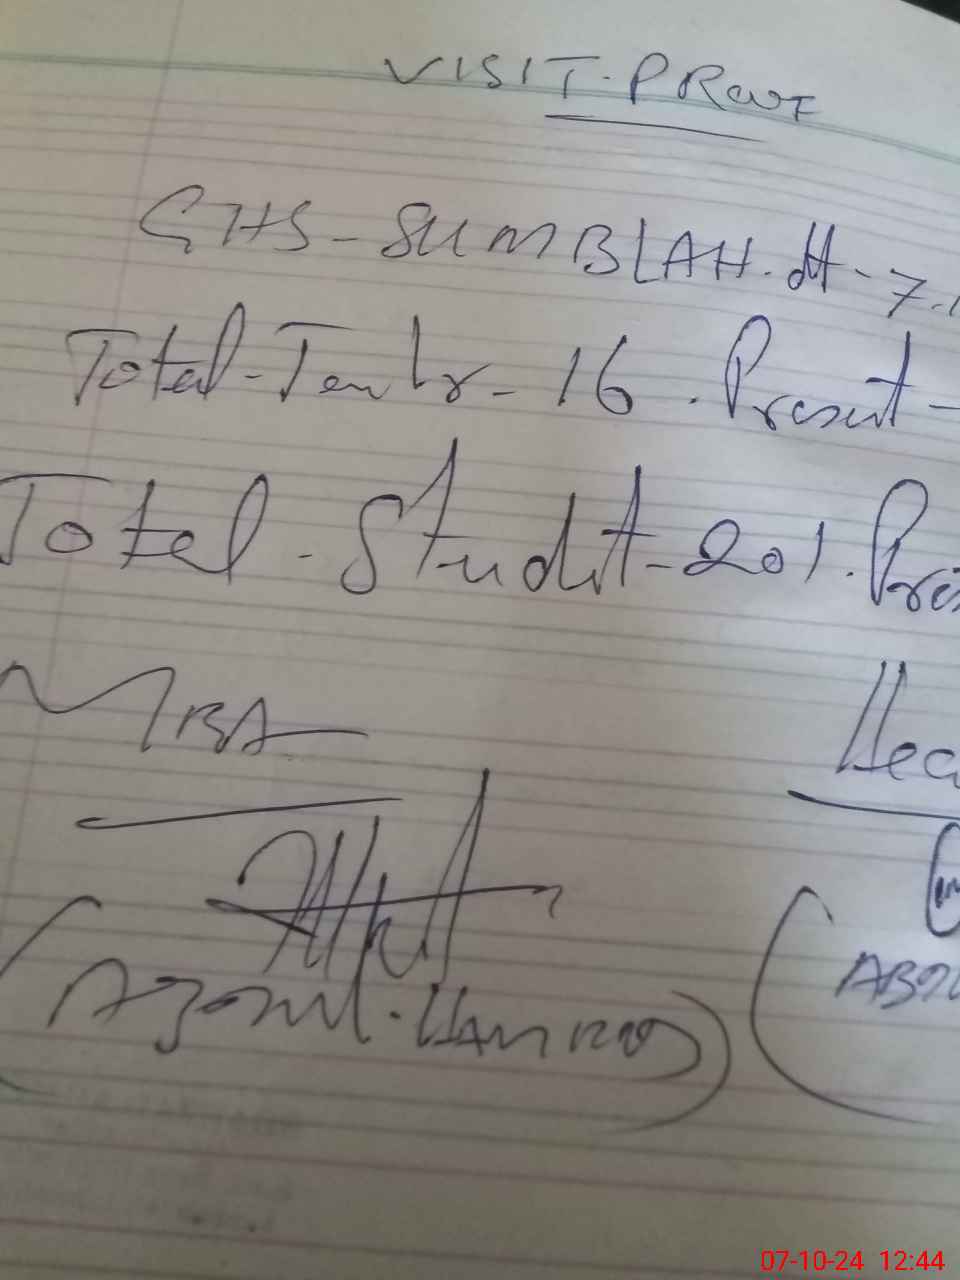 VISIT. PROOF
GHS - SUMBLAH. dt - 7.1
Total - Teachr - 16. Present -
Total - Studnt - 201. Pres
MBA
Hea
ABDU
07-10-24 12:44